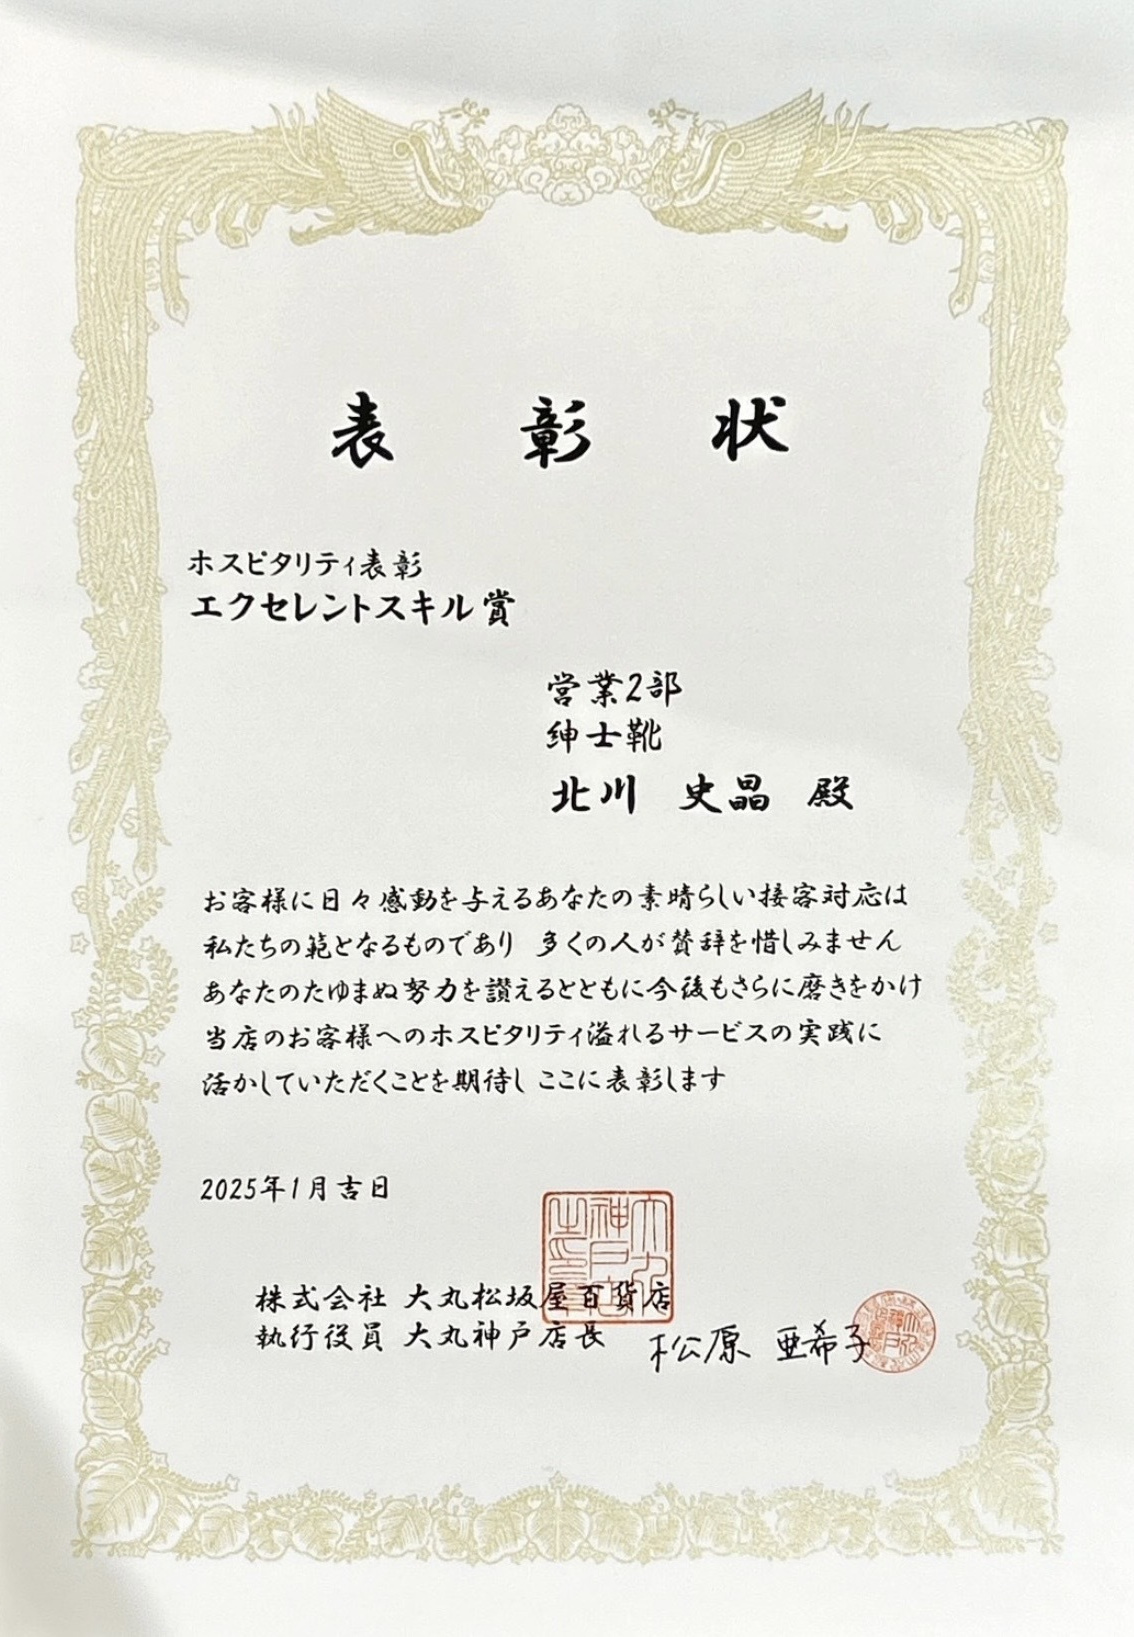 表彰状
ホスピタリティ表彰
エクセレントスキル賞
営業2部
紳士靴
北川 史晶 殿
お客様に日々感動を与えるあなたの素晴らしい接客対応は
私たちの範となるものであり 多くの人が賛辞を惜しみません
あなたのたゆまぬ努力を讃えるとともに今後もさらに磨きをかけ
当店のお客様へのホスピタリティ溢れるサービスの実践に
活かしていただくことを期待し ここに表彰します
2025年1月吉日
株式会社 大丸松坂屋百貨店
執行役員 大丸神戸店長 松原 亜希子